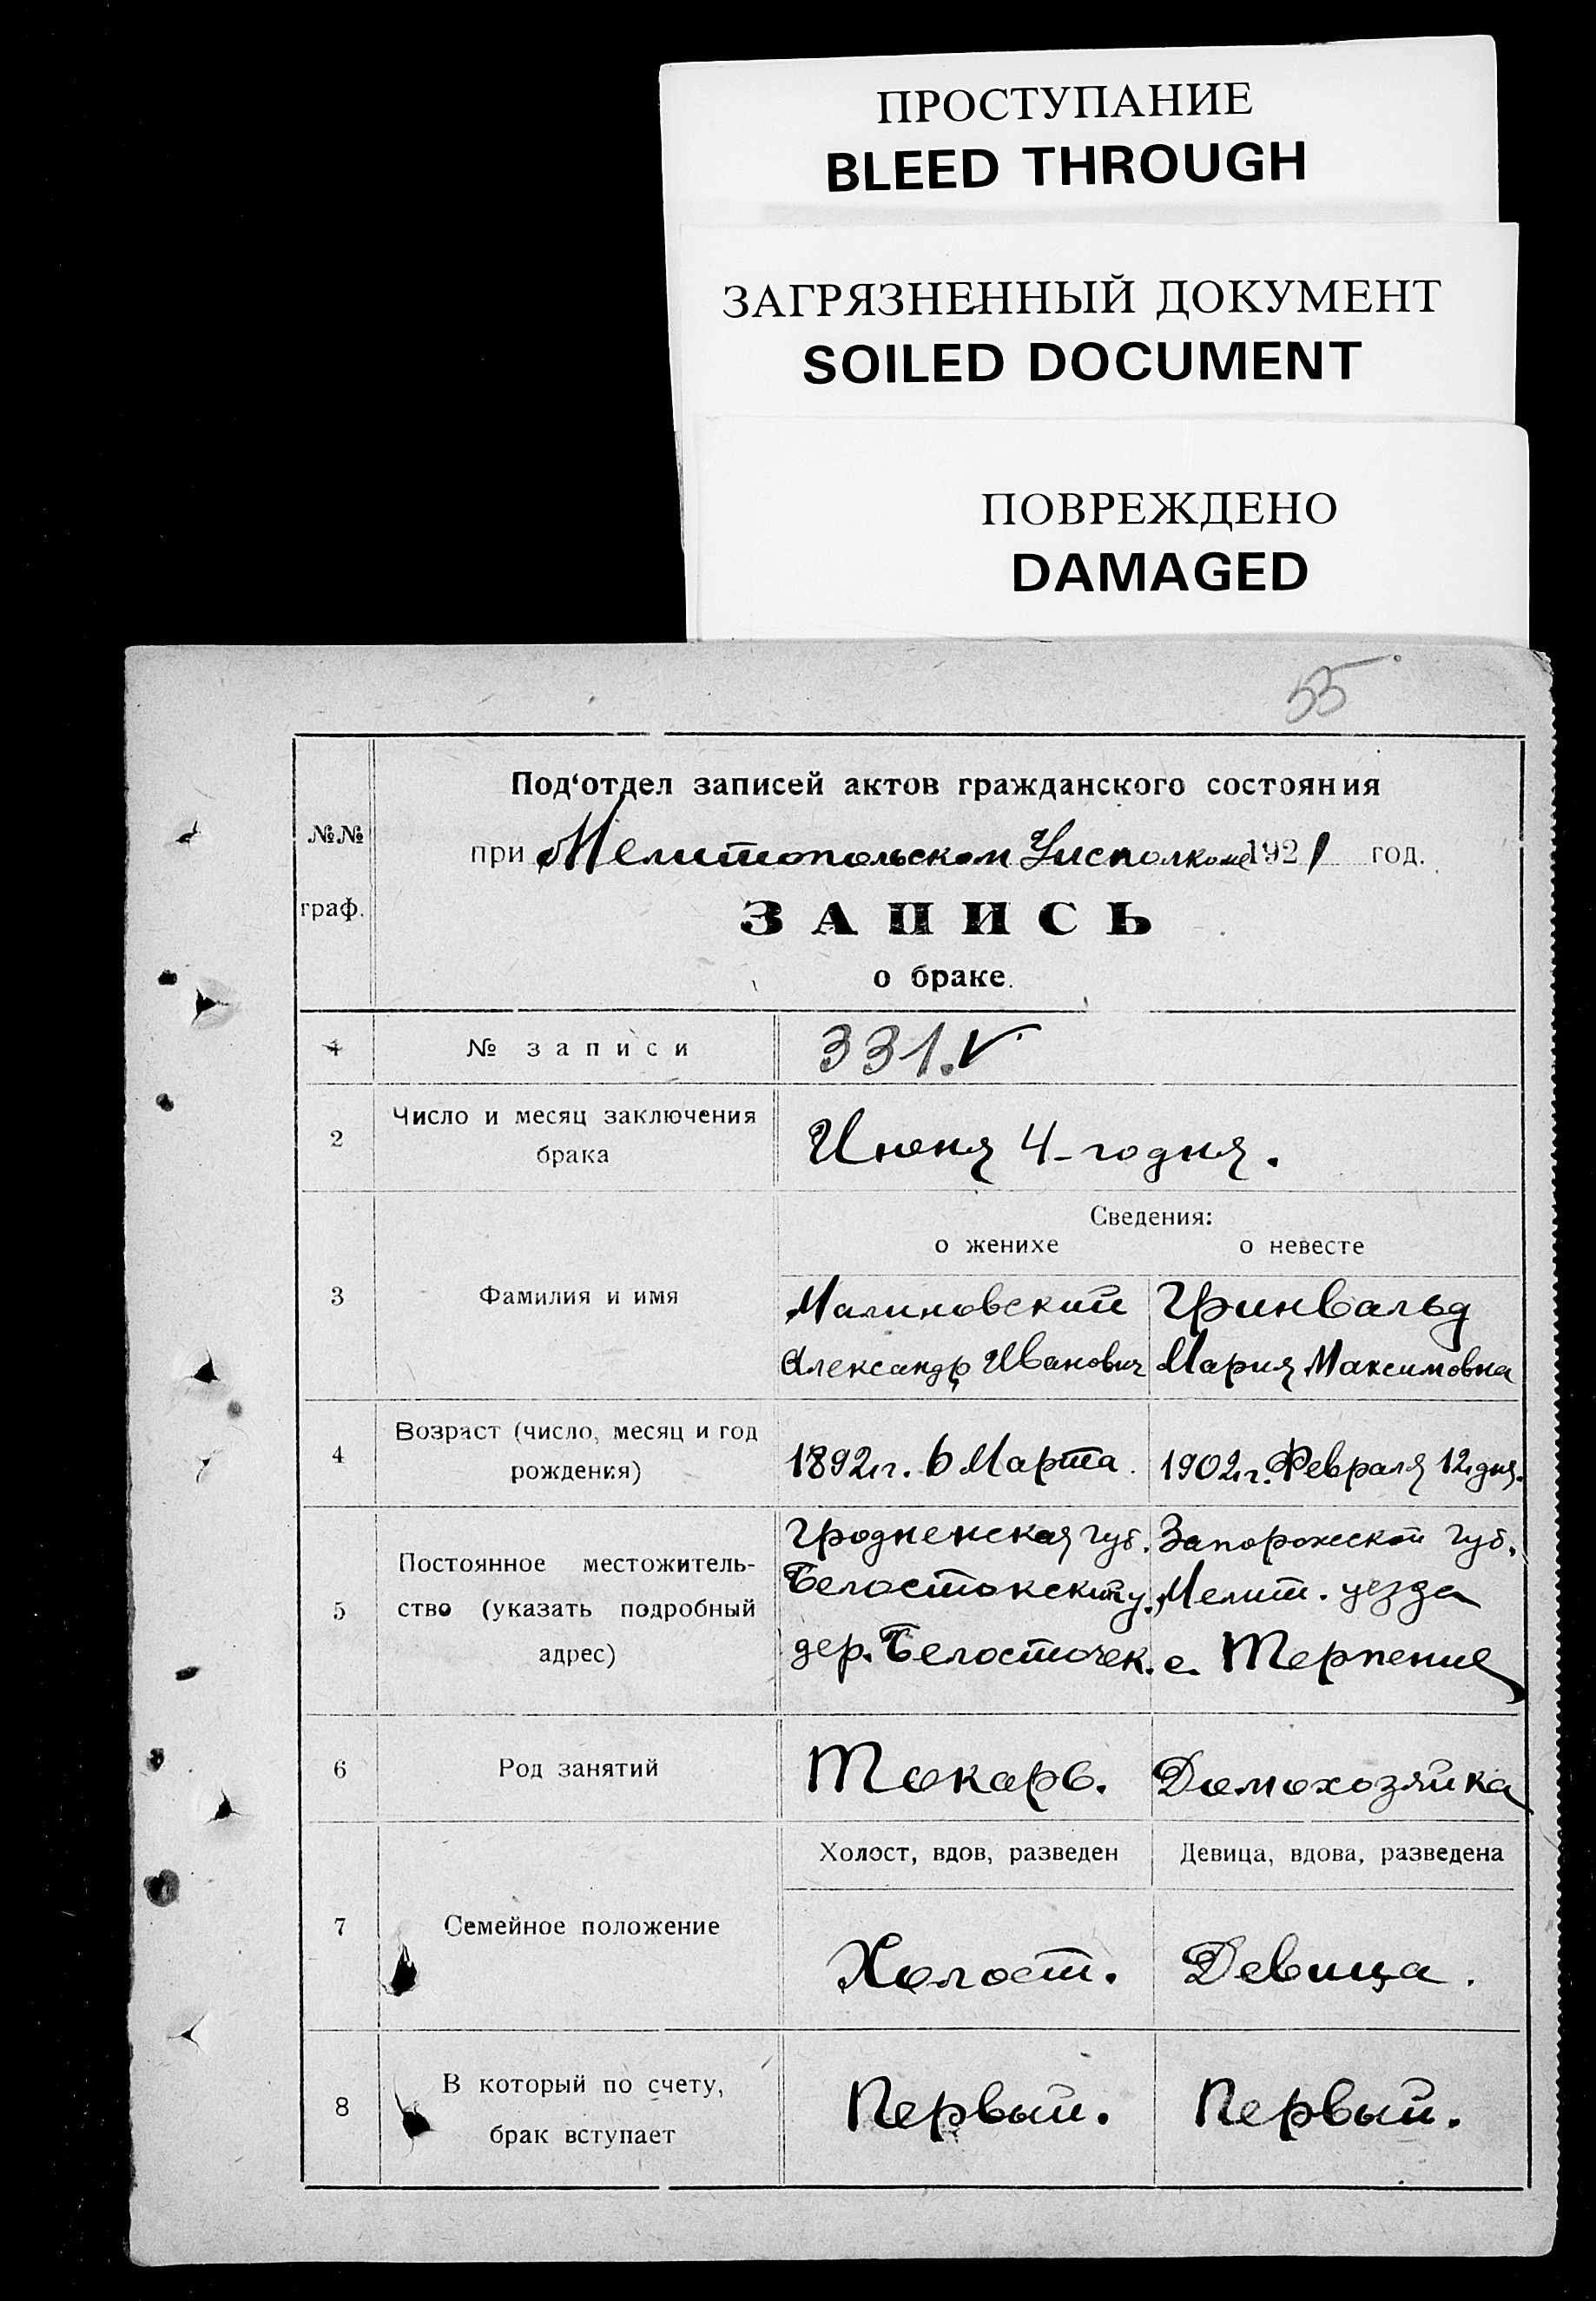 ПРОСТУПАНИЕ
BLEED THROUGH
ЗАГРЯЗНЕННЫЙ ДОКУМЕНТ
SOILED DOCUMENT
ПОВРЕЖДЕНО
DAMAGED
55
Под‘отдел записей актов гражданского состояния
№№
при Мелитопольском Уисполкоме 1921 год.
граф.
ЗАПИСЬ
о браке.
1 № записи 331. V
2 Число и месяц заключения
брака
Июня 4-го дня.
Сведения:
о женихе о невесте
3 Фамилия и имя
Малиновский Гринвальд
Александр Иванович Мария Максимовна
4 Возраст (число, месяц и год
рождения)
1892 г. 6 Марта. 1902 г. Февраля 12 дня.
5 Постоянное местожитель-
ство (указать подробный
адрес)
Гродненская губ. Запорожской губ.
Белостокский у. Мелит. уезда
дер. Белосточек. с. Терпение
6 Род занятий Токарь. Домохозяйка
Холост, вдов, разведен Девица, вдова, разведена
7 Семейное положение
Холост. Девица.
8 В который по счету,
брак вступает
Первый. Первый.